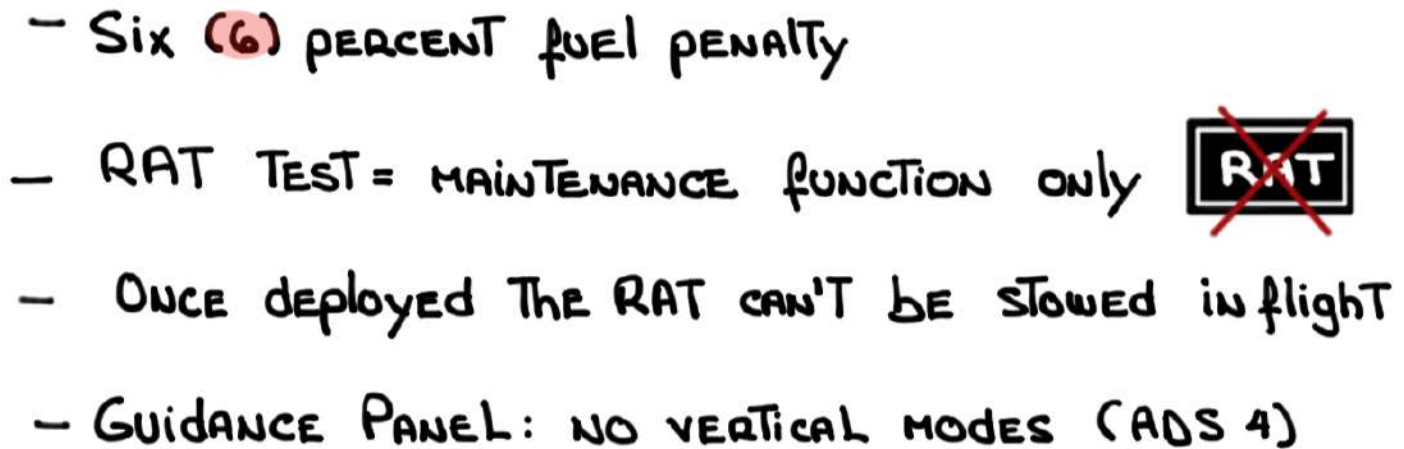 - Six (6) PERCENT fuel PENALTY
- RAT TEST = MAINTENANCE function only RAT
- ONCE deployed The RAT CAN'T bE STowEd in flighT
- GuidANCE PANEL: NO VERTICAL MODES (ADS 4)